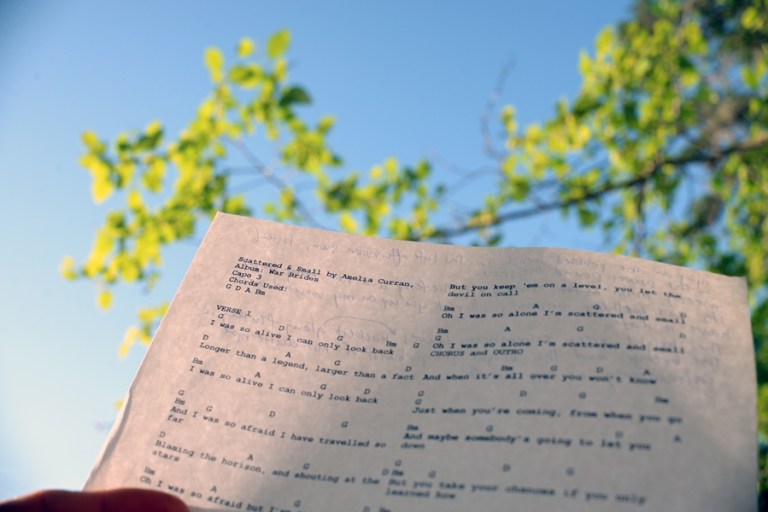 Scattered & Small by Amelia Curran,
Album: War Brides
Capo 3
Chords Used:
G D A Bm
VERSE 1
G D G Bm
I was so alive I can only look back
D A G D
Longer than a legend, larger than a fact
Bm A G D
I was so alive I can only look back
G
Bm G D G
And I was so afraid I have travelled so
far
D A G D
Blazing the horizon, and shouting at the
stars
Bm A G D
Oh I was so afraid but
But you keep 'em on a level, you let the
devil on call
Bm A G D
Oh I was so alone I'm scattered and small
G
Bm A G D
Oh I was so alone I'm scattered and small
G
CHORUS and OUTRO
Bm G D A
And when it's all over you won't know
G D G Bm
Just when you're coming, from when you go
G
Bm G D A
And maybe somebody's going to let you
down
G D G
Bm G
But you take your chances if you only
learned how